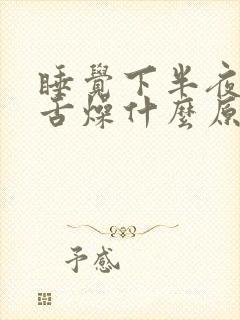 睡覺下半夜
舌燥什麼原
予感